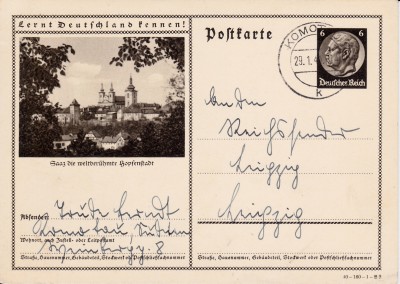 Lernt Deutschland kennen!
Saaz die weltberühmte Hopfenstadt
Absender:
Trude
Komotau, Sudeten
Wohnort, auch Zustell- oder Leitpostamt
8
Straße, Hausnummer, Gebäudeteil, Stockwerk oder Postschließfachnummer
Postkarte
KOMOT
29.1.4
k
6 6
Deutsches Reich
An den
Reichssender
Leipzig
Leipzig
Straße, Hausnummer, Gebäudeteil, Stockwerk oder Postschließfachnummer